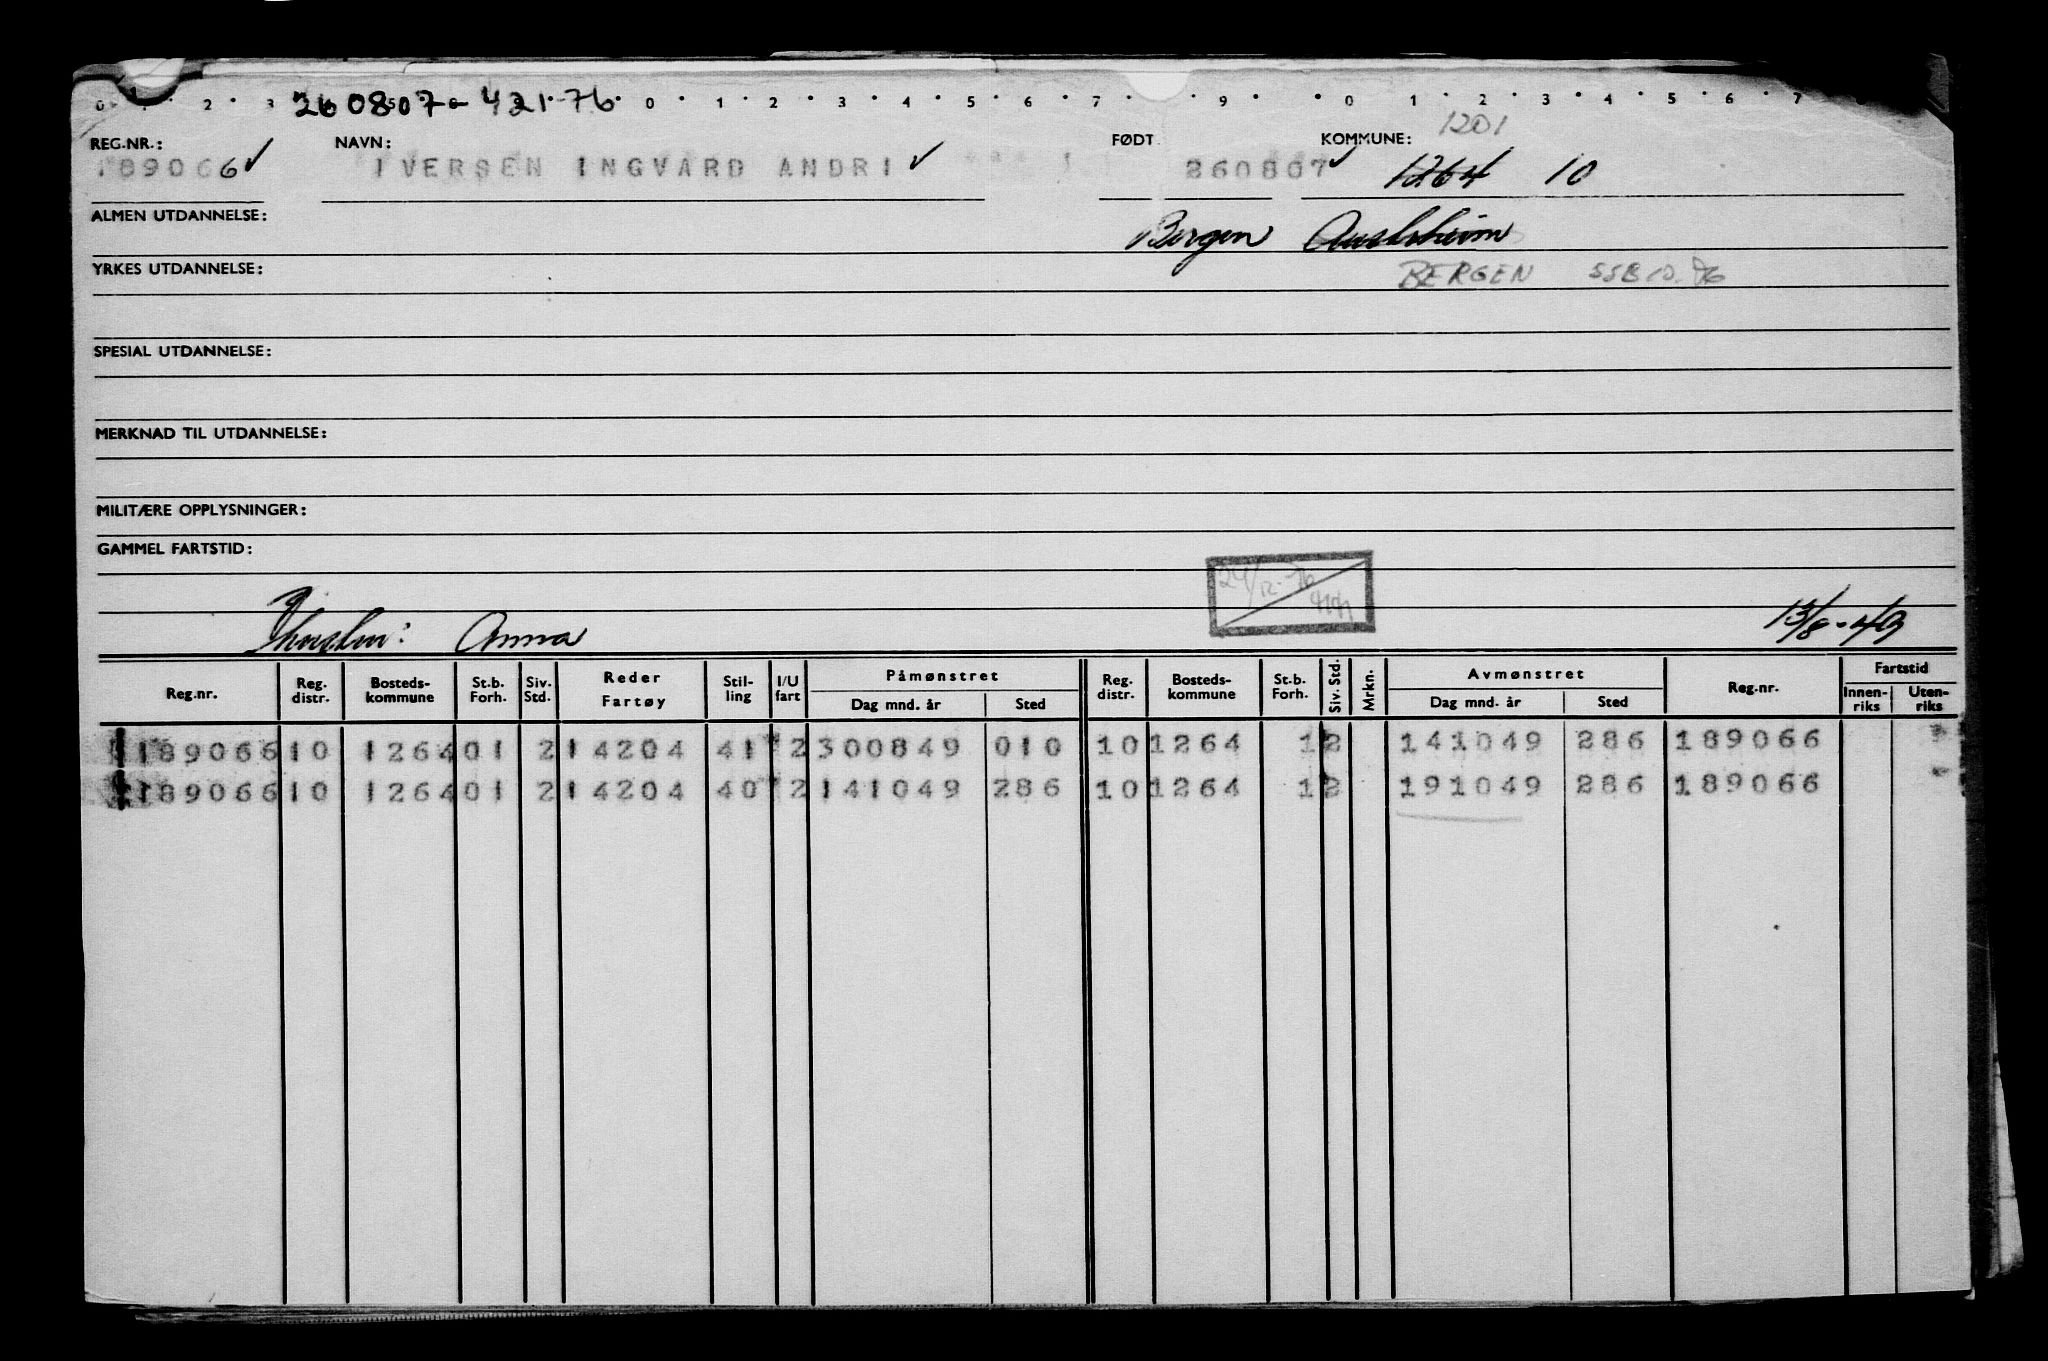 260807-42176
REG.NR.: NAVN: FØDT KOMMUNE: 1201
189066 ✓ IVERSEN INGVARD ANDRI ✓ 260807 ✓ 1264 10
ALMEN UTDANNELSE: Bergen Austrheim
YRKES UTDANNELSE: BERGEN SSB 10.76
SPESIAL UTDANNELSE:
MERKNAD TIL UTDANNELSE:
MILITÆRE OPPLYSNINGER:
GAMMEL FARTSTID:
24/12-76
Anna 13/8-49
Reg.nr. Reg. distr. Bosteds-kommune St.b. Forh. Siv. Std. Reder Fartøy Stil-ling I/U fart Påmønstret Dag mnd. år Sted Reg. distr. Bosteds-kommune St.b. Forh. Siv. Std. Mrkn. Avmønstret Dag mnd. år Sted Reg.nr. Fartstid Innen-riks Uten-riks
189066 10 1264 01 2 14204 41 2 300849 010 10 1264 1 2 141049 286 189066
189066 10 1264 01 2 14204 40 2 141049 286 10 1264 1 2 191049 286 189066